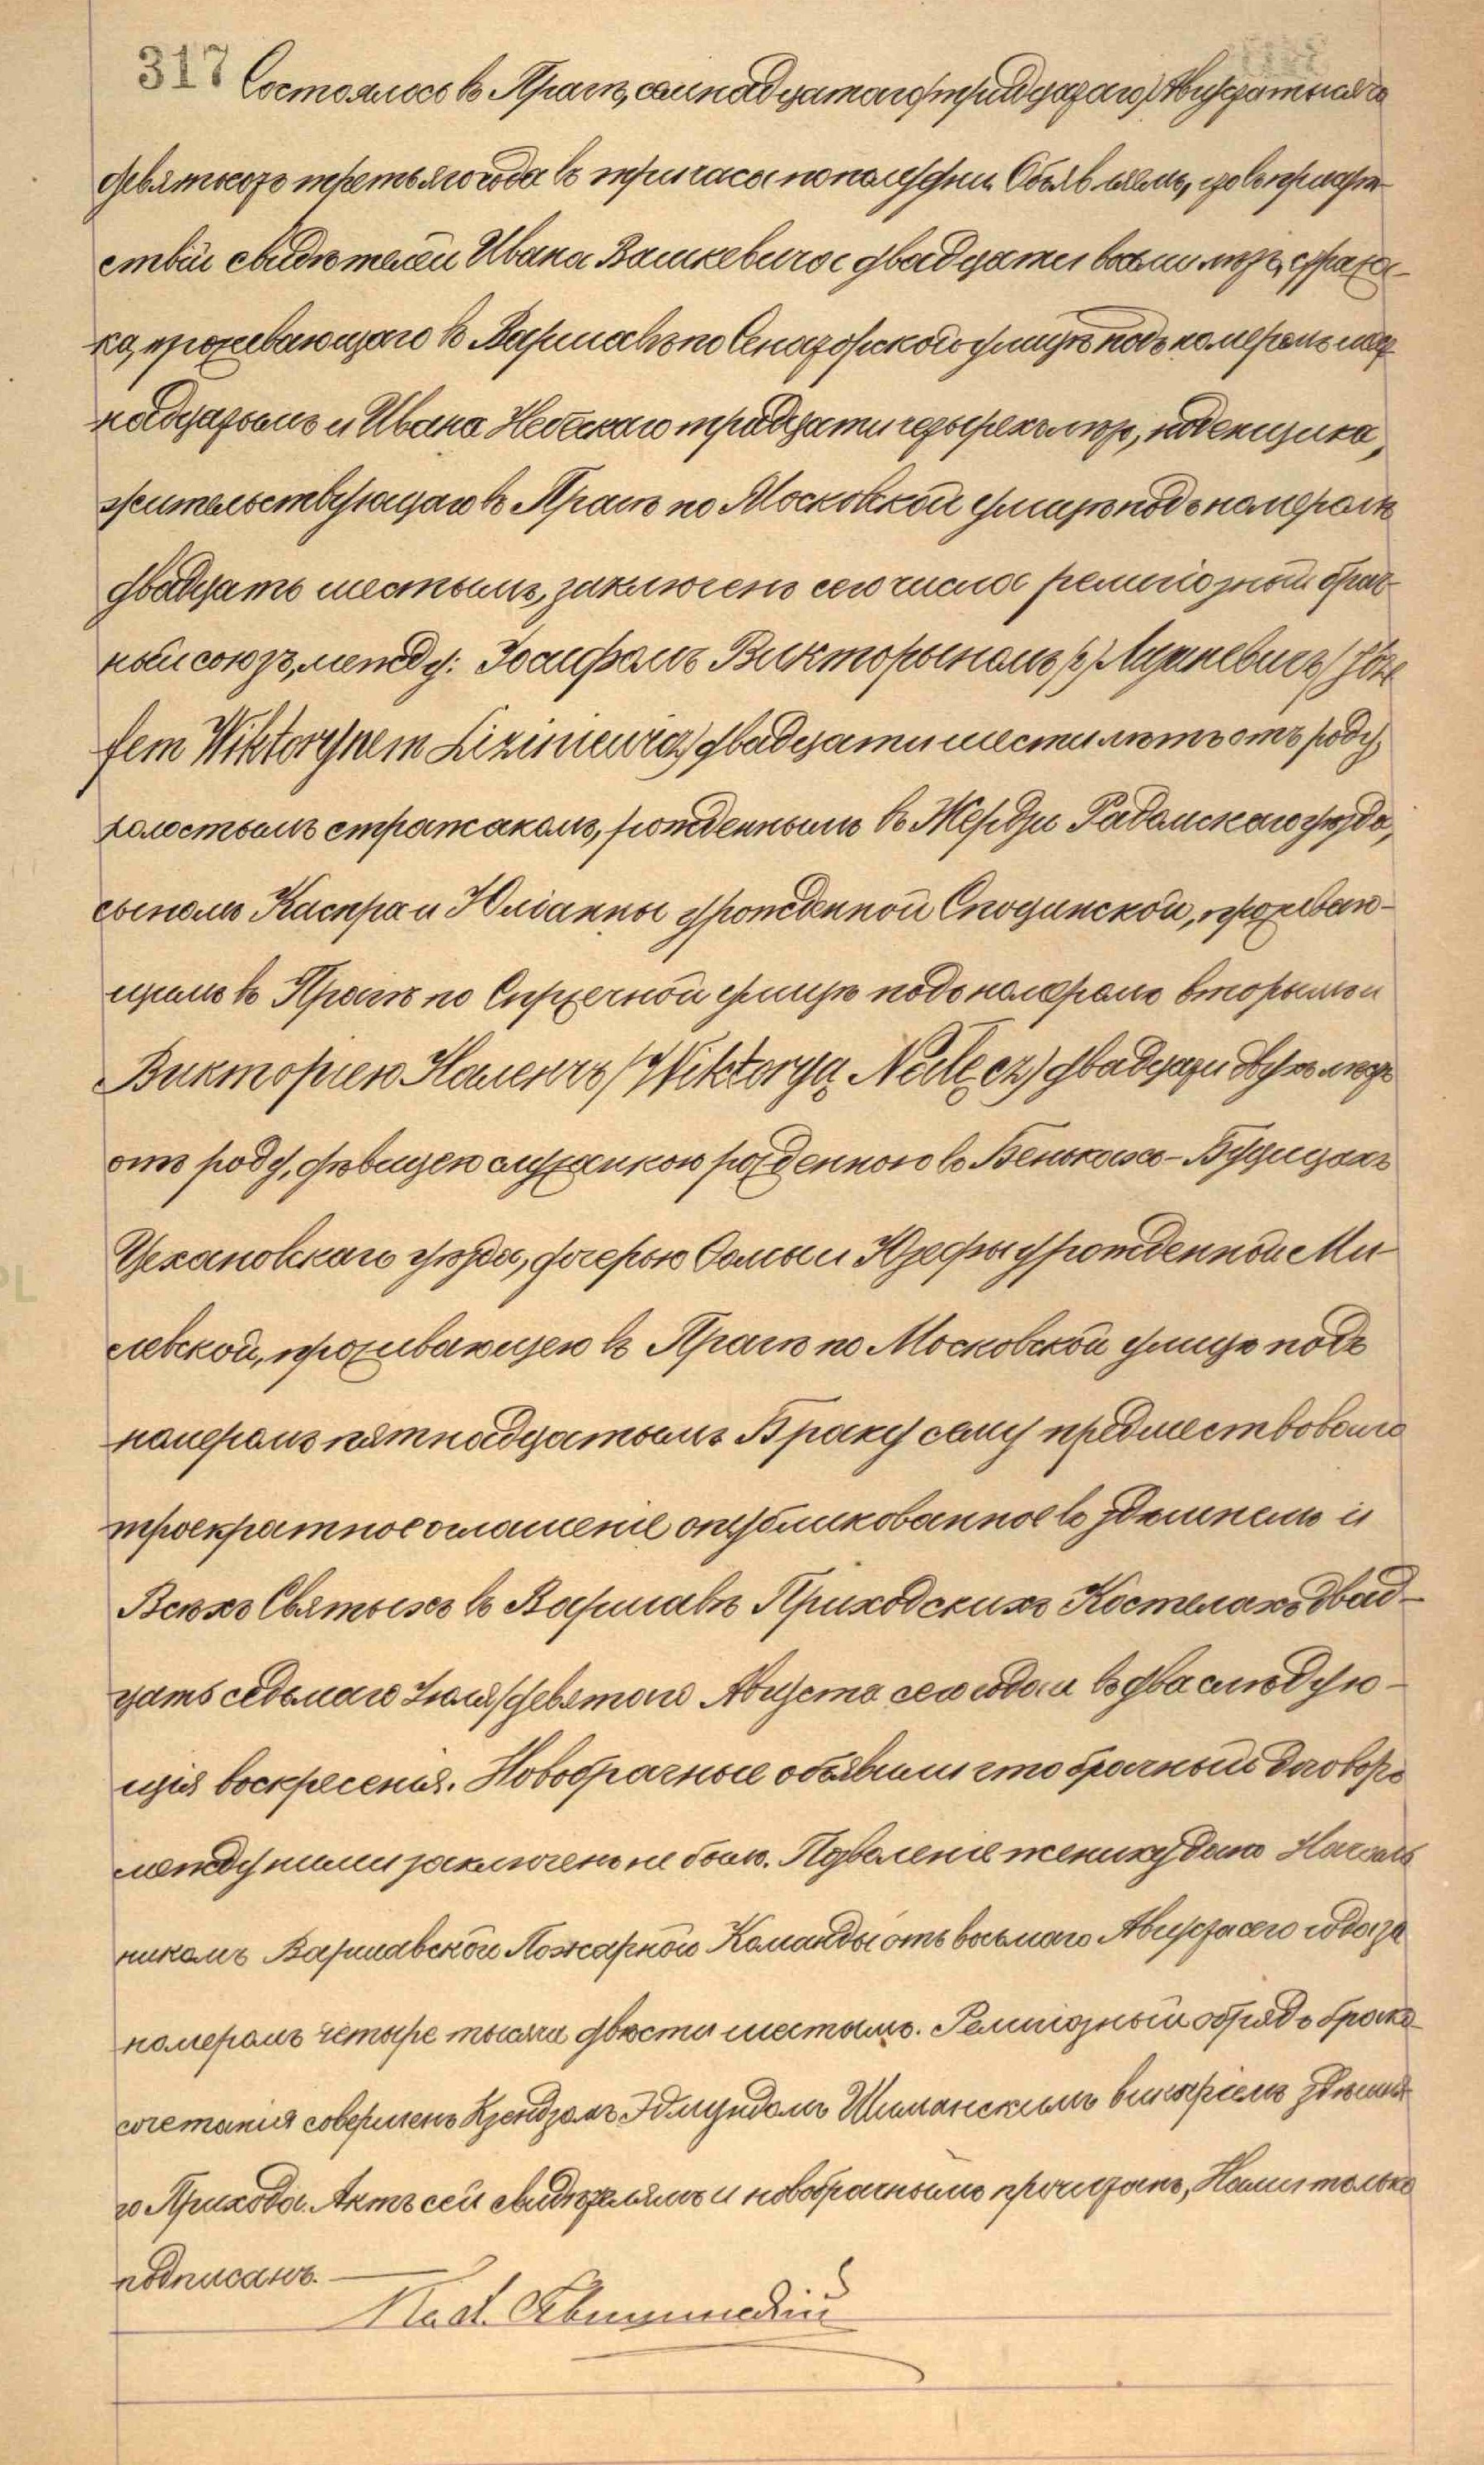 317 Состоялось въ Прагѣ, семнадцатаго/тридцатаго/Августа тысяча
девятьсотъ третьяго года въ три часа пополудни. Объявляемъ, что въ присут-
ствіи свидѣтелей Ивана Вашкевича двадцати восьми лѣтъ, стража-
ка, проживающаго въ Варшавѣ по Сенаторской улицѣ подъ номеромъ
надцатымъ и Ивана Небескаго тридцати четырехъ лѣтъ, поденщика,
жительствующаго въ Прагѣ по Московской улицѣ подъ номеромъ
двадцать шестымъ, заключенъ сего числа религіозный брач-
ный союзъ, между: Іосифомъ Викторыномъ /2/ Лизиневичъ /Józe
fem Wiktorynem Liziniewicz/ двадцати шести лѣтъ отъ роду,
холостымъ стражакомъ, рожденнымъ въ Жердзи Радомскаго уѣзда,
сыномъ Каспра и Юліанны урожденной Сподинской, проживаю-
щимъ въ Прагѣ по Спржечной улицѣ подъ номеромъ вторымъ и
Викторіею Наленчъ /Wiktoryą Nałęcz/ двадцати двухъ лѣтъ
отъ роду, дѣвицею служанкою рожденною въ Бенькахъ-Буцицахъ
Цехановскаго уѣзда, дочерью Фомы и Юзефы урожденной Ми-
левской, проживающею въ Прагѣ по Московской улицѣ подъ
номеромъ пятнадцатымъ. Браку сему предшествовало
троекратное оглашеніе опубликованное въ здѣшнемъ и
Всѣхъ Святыхъ въ Варшавѣ Приходскихъ Костелахъ двад-
цать седьмаго Іюля/девятаго Августа сего года и въ два слѣдую-
щія воскресенія. Новобрачные объявили что брачный договоръ
между ними заключенъ не былъ. Позволеніе жениху дано Началь
никомъ Варшавской Пожарной Команды отъ восьмаго Августа сего года за
номеромъ четыре тысячи двѣсти шестымъ. Религіозный обрядъ брако-
сочетанія совершенъ Ксендзомъ Эдмундомъ Шиманскимъ викаріемъ здѣшня
го Прихода. Актъ сей свидѣтелямъ и новобрачнымъ прочитанъ, Нами только
подписанъ.